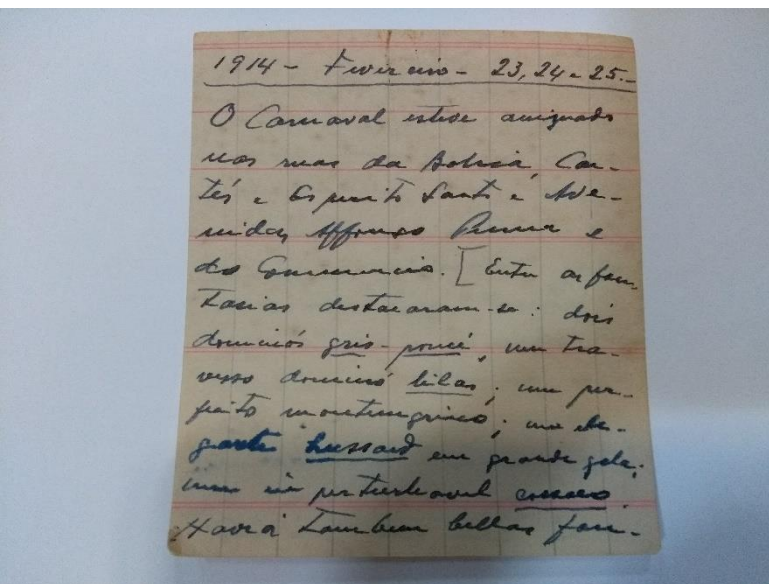 1914 - Fevereiro - 23, 24 e 25.-
O Carnaval esteve animado
nas ruas da Bahia, Cae-
tés e Espirito Santo e Ave-
nidas Affonso Penna e
do Commercio. [Entre as fan-
tasias destacaram-se: dois
dominós gris-poncé, um tra-
vesso dominó lilas; um per-
feito montenegrino; um ele-
gante hussard em grande gala;
um imperturbavel cossaco.
Havia tambem bellas fan-